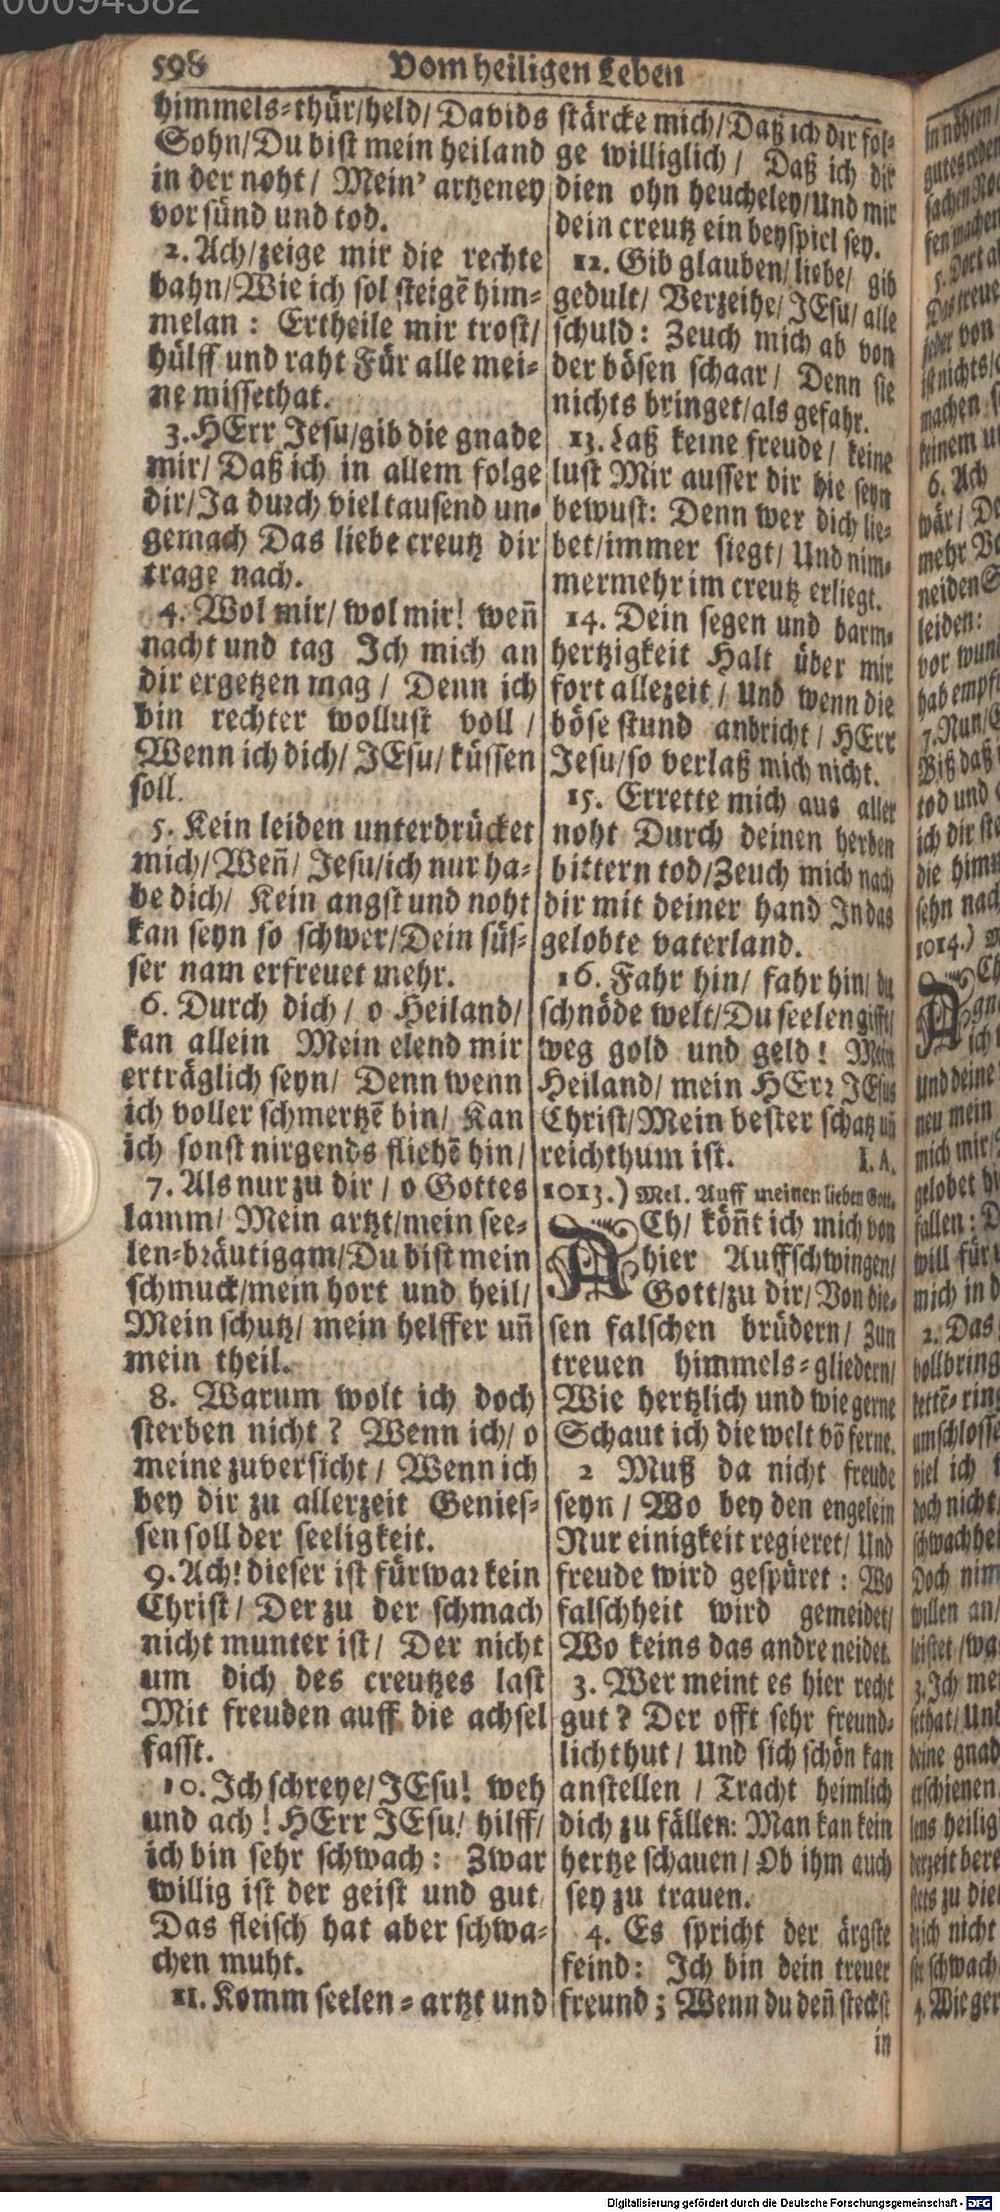 00094382
598 Vom heiligen Leben
himmels-thür/held/ Davids
Sohn/Du bist mein heiland
in der noht/ Mein' artzeney
vor sünd und tod.
2. Ach/zeige mir die rechte
bahn/Wie ich sol steigē him-
melan: Ertheile mir trost/
hülff und raht Für alle mei-
ne missethat.
3. HErr Jesu/gib die gnade
mir/ Daß ich in allem folge
dir/Ja durch viel tausend un-
gemach Das liebe creutz dir
trage nach.
4. Wol mir/ wol mir! weñ
nacht und tag Ich mich an
dir ergetzen mag/ Denn ich
bin rechter wollust voll/
Wenn ich dich/ JEsu/ küssen
soll.
5. Kein leiden unterdrücket
mich/Weñ/ Jesu/ich nur ha-
be dich/ Kein angst und noht
kan seyn so schwer/Dein süs-
ser nam erfreuet mehr.
6. Durch dich/ o Heiland/
kan allein Mein elend mir
erträglich seyn/ Denn wenn
ich voller schmertzē bin/ Kan
ich sonst nirgends fliehē hin/
7. Als nur zu dir/ o Gottes
lamm/ Mein artzt/mein see-
len-bräutigam/Du bist mein
schmuck/mein hort und heil/
Mein schutz/ mein helffer uñ
mein theil.
8. Warum wolt ich doch
sterben nicht? Wenn ich/ o
meine zuversicht/ Wenn ich
bey dir zu allerzeit Genies-
sen soll der seeligkeit.
9. Ach! dieser ist fürwar kein
Christ/ Der zu der schmach
nicht munter ist/ Der nicht
um dich des creutzes last
Mit freuden auff die achsel
fasst.
10. Ich schreye/JEsu! weh
und ach! HErr JEsu/ hilff/
ich bin sehr schwach: Zwar
willig ist der geist und gut
Das fleisch hat aber schwa-
chen muht.
11. Komm seelen-artzt und
stärcke mich/ Daß ich dir fol-
ge williglich/ Daß ich dir
dien ohn heucheley/Und mir
dein creutz ein beyspiel sey.
12. Gib glauben/ liebe/ gib
gedult/ Verzeihe/ JEsu/ alle
schuld: Zeuch mich ab von
der bösen schaar/ Denn sie
nichts bringet/als gefahr.
13. Laß keine freude/ keine
lust Mir ausser dir hie seyn
bewust: Denn wer dich lie-
bet/immer siegt/ Und nim-
mermehr im creutz erliegt.
14. Dein segen und barm-
hertzigkeit Halt über mir
fort allezeit/ Und wenn die
böse stund anbricht/ HErr
Jesu/so verlaß mich nicht.
15. Errette mich aus aller
noht Durch deinen herben
bittern tod/Zeuch mich nach
dir mit deiner hand In das
gelobte vaterland.
16. Fahr hin/ fahr hin/ du
schnöde welt/Du seelen gifft/
weg gold und geld! Mein
Heiland/ mein HErr JEsus
Christ/Mein bester schatz uñ
reichthum ist. I. A.
1013.) Mel. Auff meinen lieben Gott.
ACh/ köñt ich mich von
hier Auffschwingen/
Gott/zu dir/ Von die-
sen falschen brüdern/ Zun
treuen himmels-gliedern/
Wie hertzlich und wie gerne
Schaut ich die welt võ ferne.
2 Muß da nicht freude
seyn/ Wo bey den engelein
Nur einigkeit regieret/ Und
freude wird gespüret: Wo
falschheit wird gemeidet/
Wo keins das andre neidet.
3. Wer meint es hier recht
gut? Der offt sehr freund-
lich thut/ Und sich schön kan
anstellen/ Tracht heimlich
dich zu fällen: Man kan kein
hertze schauen/ Ob ihm auch
sey zu trauen.
4. Es spricht der ärgste
feind: Ich bin dein treuer
freund; Wenn du deñ steckst
in
in nöhten/
5. Dort
jeder von
ist nichts/
machen
keinem
6. Ach
wär/
mehr
neiden
leiden:
vor
7. Nun/
Biß daß
tod und
ich dir
die
sehn nach
1014.)
ich
und deine
neu mein
mich mir/
gelobet
fallen:
will für
mich in
2. Das
vollbring
umschlosse
viel ich
doch nicht
schwach
Doch
willen an/
leistet/
3. Ich
Und
deine gnad
erschienen
heilig
zu
nicht
schwach
4. Wie
Digitalisierung gefördert durch die Deutsche Forschungsgemeinschaft - DFG